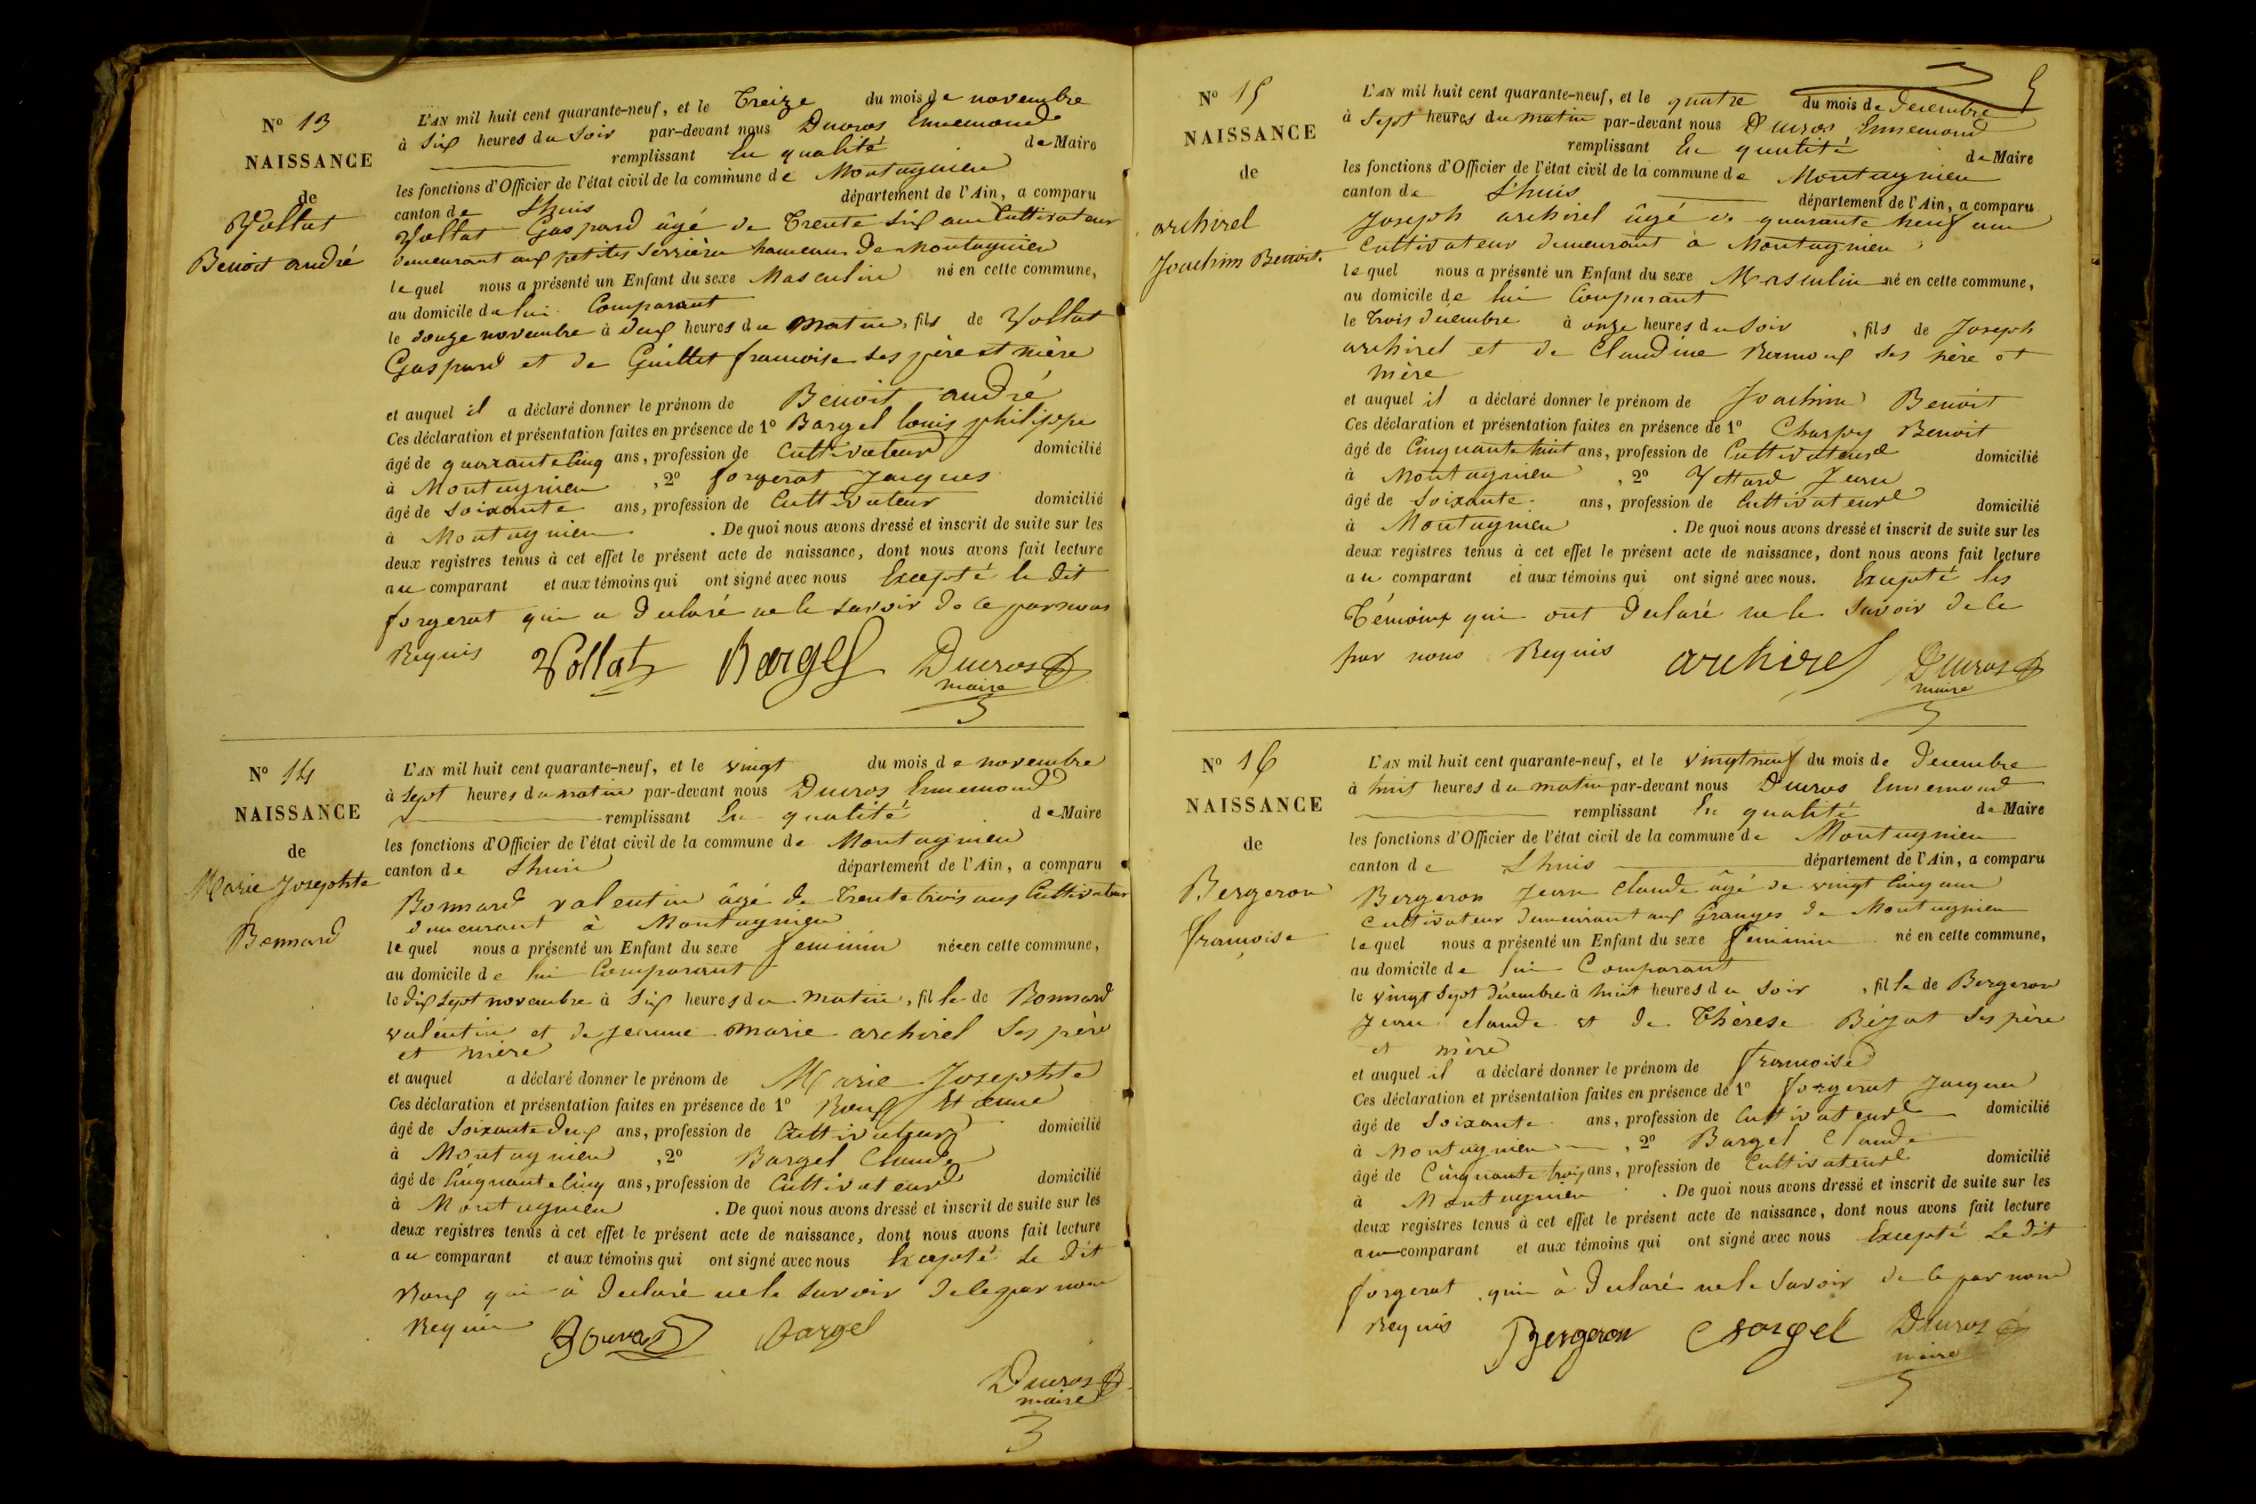 N° 13
NAISSANCE
de
Vollat
Benoit andré
L'AN mil huit cent quarante-neuf, et le Treize du mois de novembre
à Six heures du Soir par-devant nous Ducros Ennemond
remplissant En qualité de Maire
les fonctions d'Officier de l'état civil de la commune de Montagnieu
canton de Lhuis département de l'Ain, a comparu
Vollat Gaspard âgé de Trente Six ans Cultivateur
demeurant aux petites Serrières hameau De Montagnieu
lequel nous a présenté un Enfant du sexe Masculin né en cette commune,
au domicile de lui Comparant
le douze novembre à deux heures du matin, fils de Vollat
Gaspard et de Guillet francoise Ses père et mère
et auquel il a déclaré donner le prénom de Benoit andré
Ces déclaration et présentation faites en présence de 1° Bargel louis philippe
âgé de quarante Cinq ans, profession de Cultivateur domicilié
à Montagnieu, 2° forgerat Jacques
âgé de Soixante ans, profession de Cultivateur domicilié
à Montagnieu. De quoi nous avons dressé et inscrit de suite sur les
deux registres tenus à cet effet le présent acte de naissance, dont nous avons fait lecture
au comparant et aux témoins qui ont signé avec nous Excepté le dit
forgerat qui a declaré ne le savoir de ce par nous
Requis Vollat Bargel Ducros
maire
N° 14
NAISSANCE
de
Marie Josephte
Bonnard
L'AN mil huit cent quarante-neuf, et le vingt du mois de novembre
à Sept heures du matin par-devant nous Ducros Ennemond
remplissant En qualité de Maire
les fonctions d'Officier de l'état civil de la commune de Montagnieu
canton de Lhuis département de l'Ain, a comparu
Bonnard valentin âgé de Trente trois ans Cultivateur
demeurant à Montagnieu
lequel nous a présenté un Enfant du sexe feminin née en cette commune,
au domicile de lui Comparant
le dix Sept novembre à Six heures du matin, fille de Bonnard
valentin et de Jeanne marie archirel Ses père
et mère
et auquel a déclaré donner le prénom de Marie Josephte
Ces déclaration et présentation faites en présence de 1° Roux Etienne
âgé de Soixante deux ans, profession de Cultivateur domicilié
à Montagnieu, 2° Bargel Claude
âgé de Cinquante Cinq ans, profession de Cultivateur domicilié
à Montagnieu. De quoi nous avons dressé et inscrit de suite sur les
deux registres tenus à cet effet le présent acte de naissance, dont nous avons fait lecture
au comparant et aux témoins qui ont signé avec nous Excepté le dit
Roux qui à declaré ne le savoir de ce par nous
Requis Bargel
Ducros
maire
5
N° 15
NAISSANCE
de
archirel
Joachim Benoit.
L'AN mil huit cent quarante-neuf, et le quatre du mois de Decembre
à Sept heures du matin par-devant nous Ducros Ennemond
remplissant En qualité de Maire
les fonctions d'Officier de l'état civil de la commune de Montagnieu
canton de Lhuis département de l'Ain, a comparu
Joseph archirel âgé de quarante neuf ans
Cultivateur demeurant à Montagnieu
lequel nous a présenté un Enfant du sexe Masculin né en cette commune,
au domicile de lui Comparant
le Trois decembre à onze heures du Soir, fils de Joseph
archirel et de Claudine Ramoux Ses père et
mère
et auquel il a déclaré donner le prénom de Joachim Benoit
Ces déclaration et présentation faites en présence de 1° Charpy Benoit
âgé de Cinquante huit ans, profession de Cultivateur domicilié
à Montagnieu, 2° Jean
âgé de Soixante ans, profession de Cultivateur domicilié
à Montagnieu. De quoi nous avons dressé et inscrit de suite sur les
deux registres tenus à cet effet le présent acte de naissance, dont nous avons fait lecture
au comparant et aux témoins qui ont signé avec nous. Excepté les
Témoins qui ont declaré ne le Savoir de ce
par nous Requis archirel Ducros
maire
N° 16
NAISSANCE
de
Bergeron
francoise
L'AN mil huit cent quarante-neuf, et le vingt neuf du mois de Decembre
à huit heures du matin par-devant nous Ducros Ennemond
remplissant En qualité de Maire
les fonctions d'Officier de l'état civil de la commune de Montagnieu
canton de Lhuis département de l'Ain, a comparu
Bergeron Jean Claude âgé de vingt Cinq ans
Cultivateur demeurant aux Granges de Montagnieu
lequel nous a présenté un Enfant du sexe feminin né en cette commune,
au domicile de lui Comparant
le vingt Sept décembre à huit heures du Soir, fille de Bergeron
Jean claude et de Thérèse Béjat Ses père
et mère
et auquel il a déclaré donner le prénom de francoise
Ces déclaration et présentation faites en présence de 1° forgerat Jacques
âgé de Soixante ans, profession de Cultivateur domicilié
à Montagnieu, 2° Bargel Claude
âgé de Cinquante trois ans, profession de Cultivateur domicilié
à Montagnieu. De quoi nous avons dressé et inscrit de suite sur les
deux registres tenus à cet effet le présent acte de naissance, dont nous avons fait lecture
au comparant et aux témoins qui ont signé avec nous Excepté Le dit
forgerat qui à declaré ne le Savoir de ce par nous
Requis Bergeron Bargel Ducros
maire